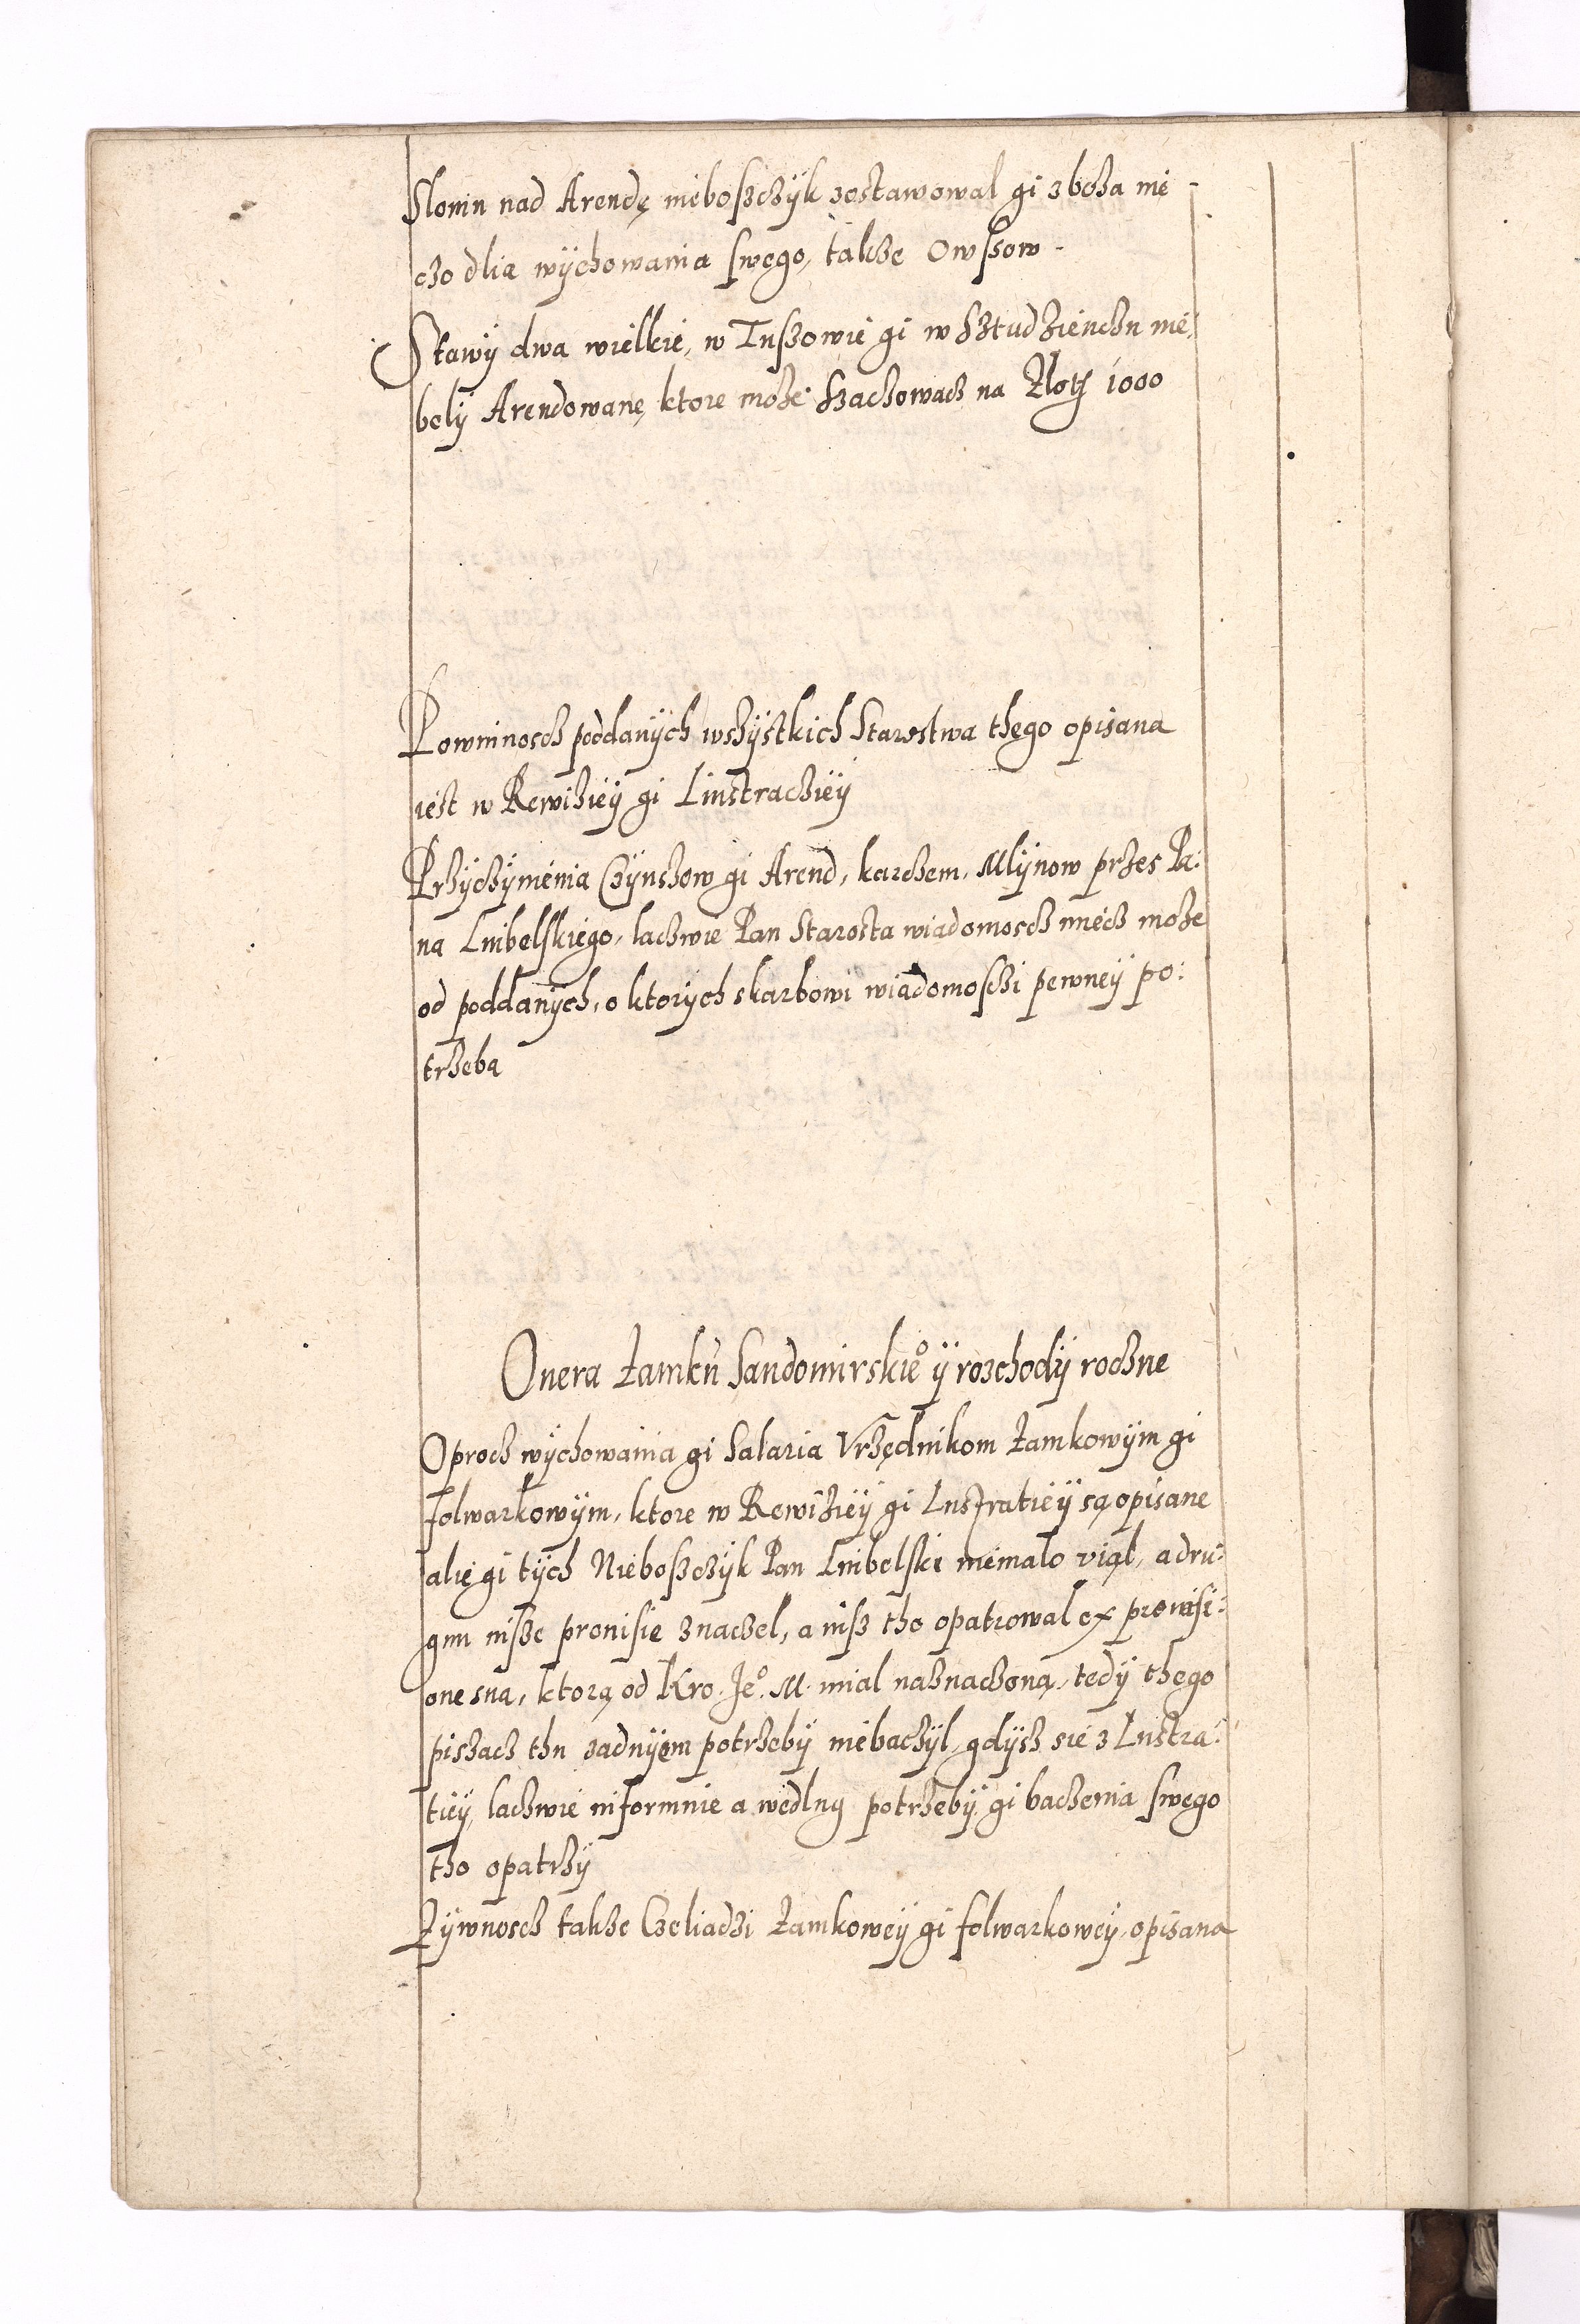 Slonin nad Arendę nieboszczÿk zostawowal gi zboża nie -
czo dlia wÿchowania swego, takze Owssow -
Stawÿ dwa wielkie, w Tuszowie gi w Sztudzienczu nie:
belÿ Arendowane, ktore może Szaczowacz na Złotÿ 1000
Powinnoscz poddanÿch wszÿstkich Starostwa thego opisana
iest w Rewiziëÿ gi Liustracziëÿ
Przÿczÿnienia Czÿnszow gi Arend, karczem, Mlÿnow przes Pa:
na Lubelskiego, laczwie Pan Starosta wiadomoscz miecz może
od poddanÿch, o ktorÿch skarbowi wiadomosczi pewneÿ po:
trzeba
Onera Zamku Sandomirskieº ÿ rozchodÿ roczne
Oprocz wÿchowania gi Salaria Vrzędnikom Zamkowÿm gi
folwarkowÿm, ktore w Rewizieÿ gi Lustratieÿ są opisane
alie gi tÿch Nieboszczÿk Pan Lubelski niemalo viąl, a dru:
gim insze prouisie znaczel, a iusz tho opatrowal ex prouisi:
one sua, ktorą od Kro. Jeº. M. mial naznaczoną, tedÿ thego
piszacz thu zadnÿem potrzebÿ niebaczÿl, gdÿsz sie z Lustra:
tieÿ, laczwie informuie a wedlug potrzebÿ gi baczenia swego
tho opatrzÿ
Zÿwnoscz takze Czeliadzi Zamkoweÿ gi folwarkoweÿ, opisana